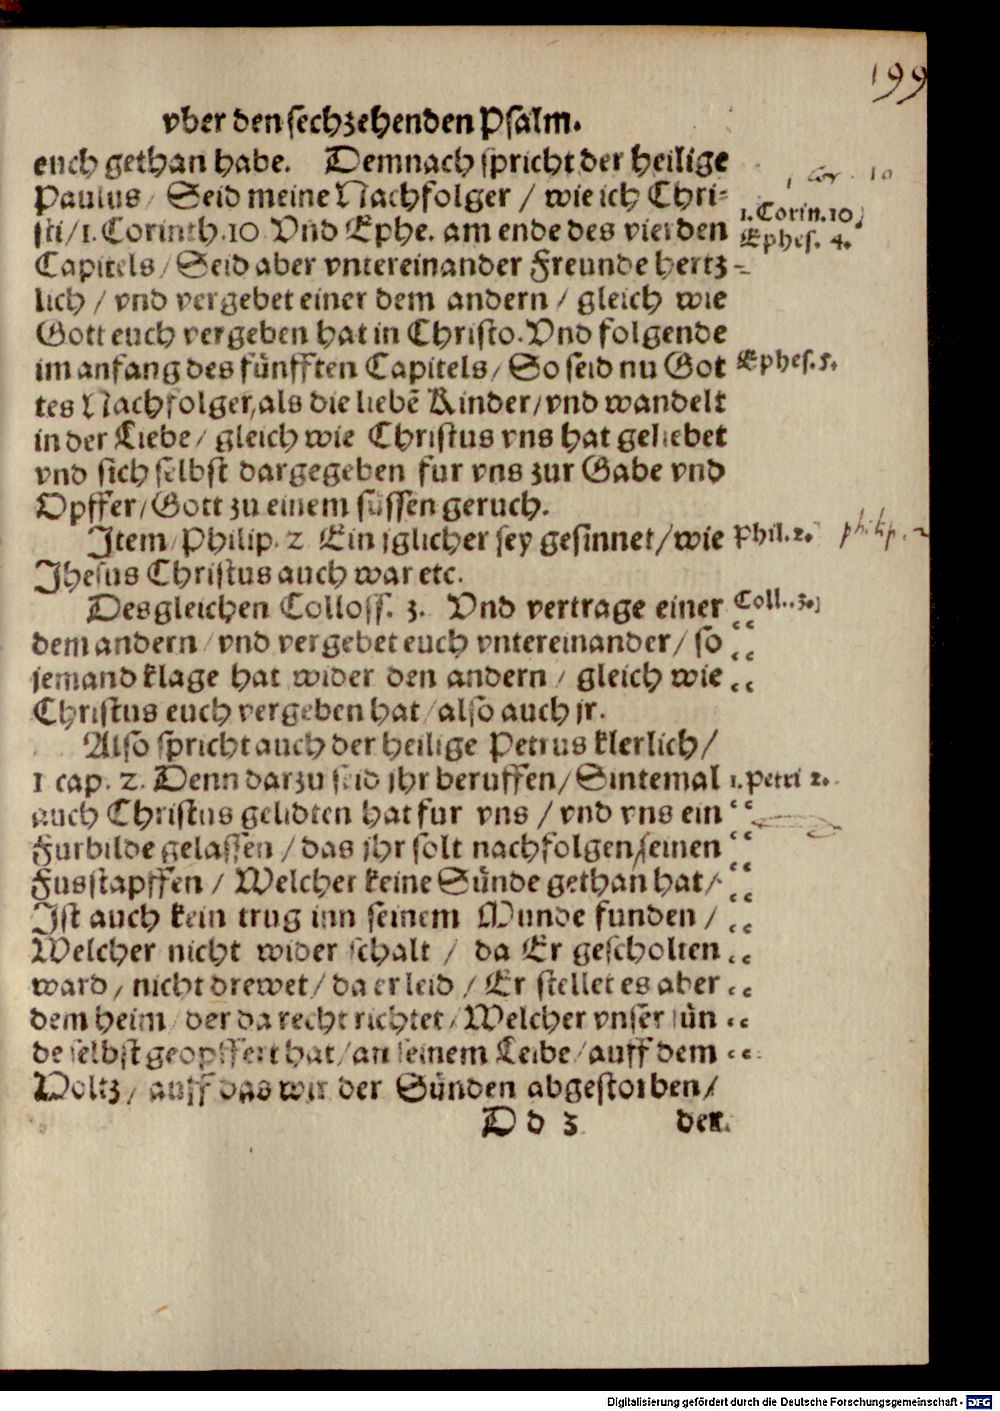 199
vber den sechzehenden Psalm.
euch gethan habe. Demnach spricht der heilige
Paulus / Seid meine Nachfolger / wie ich Chri-
sti / 1. Corinth. 10 Vnd Ephe. am ende des vierden
Capitels / Seid aber vntereinander Freunde hertz-
lich / vnd vergebet einer dem andern / gleich wie
Gott euch vergeben hat in Christo. Vnd folgende
im anfang des fünfften Capitels / So seid nu Got
tes Nachfolger, als die liebē Kinder / vnd wandelt
in der Liebe / gleich wie Christus vns hat geliebet
vnd sich selbst dargegeben fur vns zur Gabe vnd
Opffer / Gott zu einem süssen geruch.
Item Philip. 2 Ein iglicher sey gesinnet / wie
Jhesus Christus auch war etc.
Desgleichen Colloss. 3. Vnd vertrage einer
dem andern / vnd vergebet euch vntereinander / so
jemand klage hat wider den andern / gleich wie
Christus euch vergeben hat / also auch jr.
Also spricht auch der heilige Petrus klerlich /
1 cap. 2. Denn darzu seid jhr beruffen / Sintemal
auch Christus gelidten hat fur vns / vnd vns ein
Furbilde gelassen / das jhr solt nachfolgen / seinen
Fusstapffen / Welcher keine Sünde gethan hat /
Ist auch kein trug inn seinem Munde funden /
Welcher nicht wider schalt / da Er gescholten
ward / nicht drewet / da er leid / Er stellet es aber
dem heim / der da recht richtet / Welcher vnser sün
de selbst geopffert hat / an seinem Leibe / auff dem
Holtz / auff das wir der Sünden abgestorben /
D d 3 der
1 Cor. 10
1. Corin. 10.
Ephes. 4.
Ephes. 5.
Phil. 2.
philip. 2
Coll. 3.
1. Petri 2.
Digitalisierung gefördert durch die Deutsche Forschungsgemeinschaft - DFG